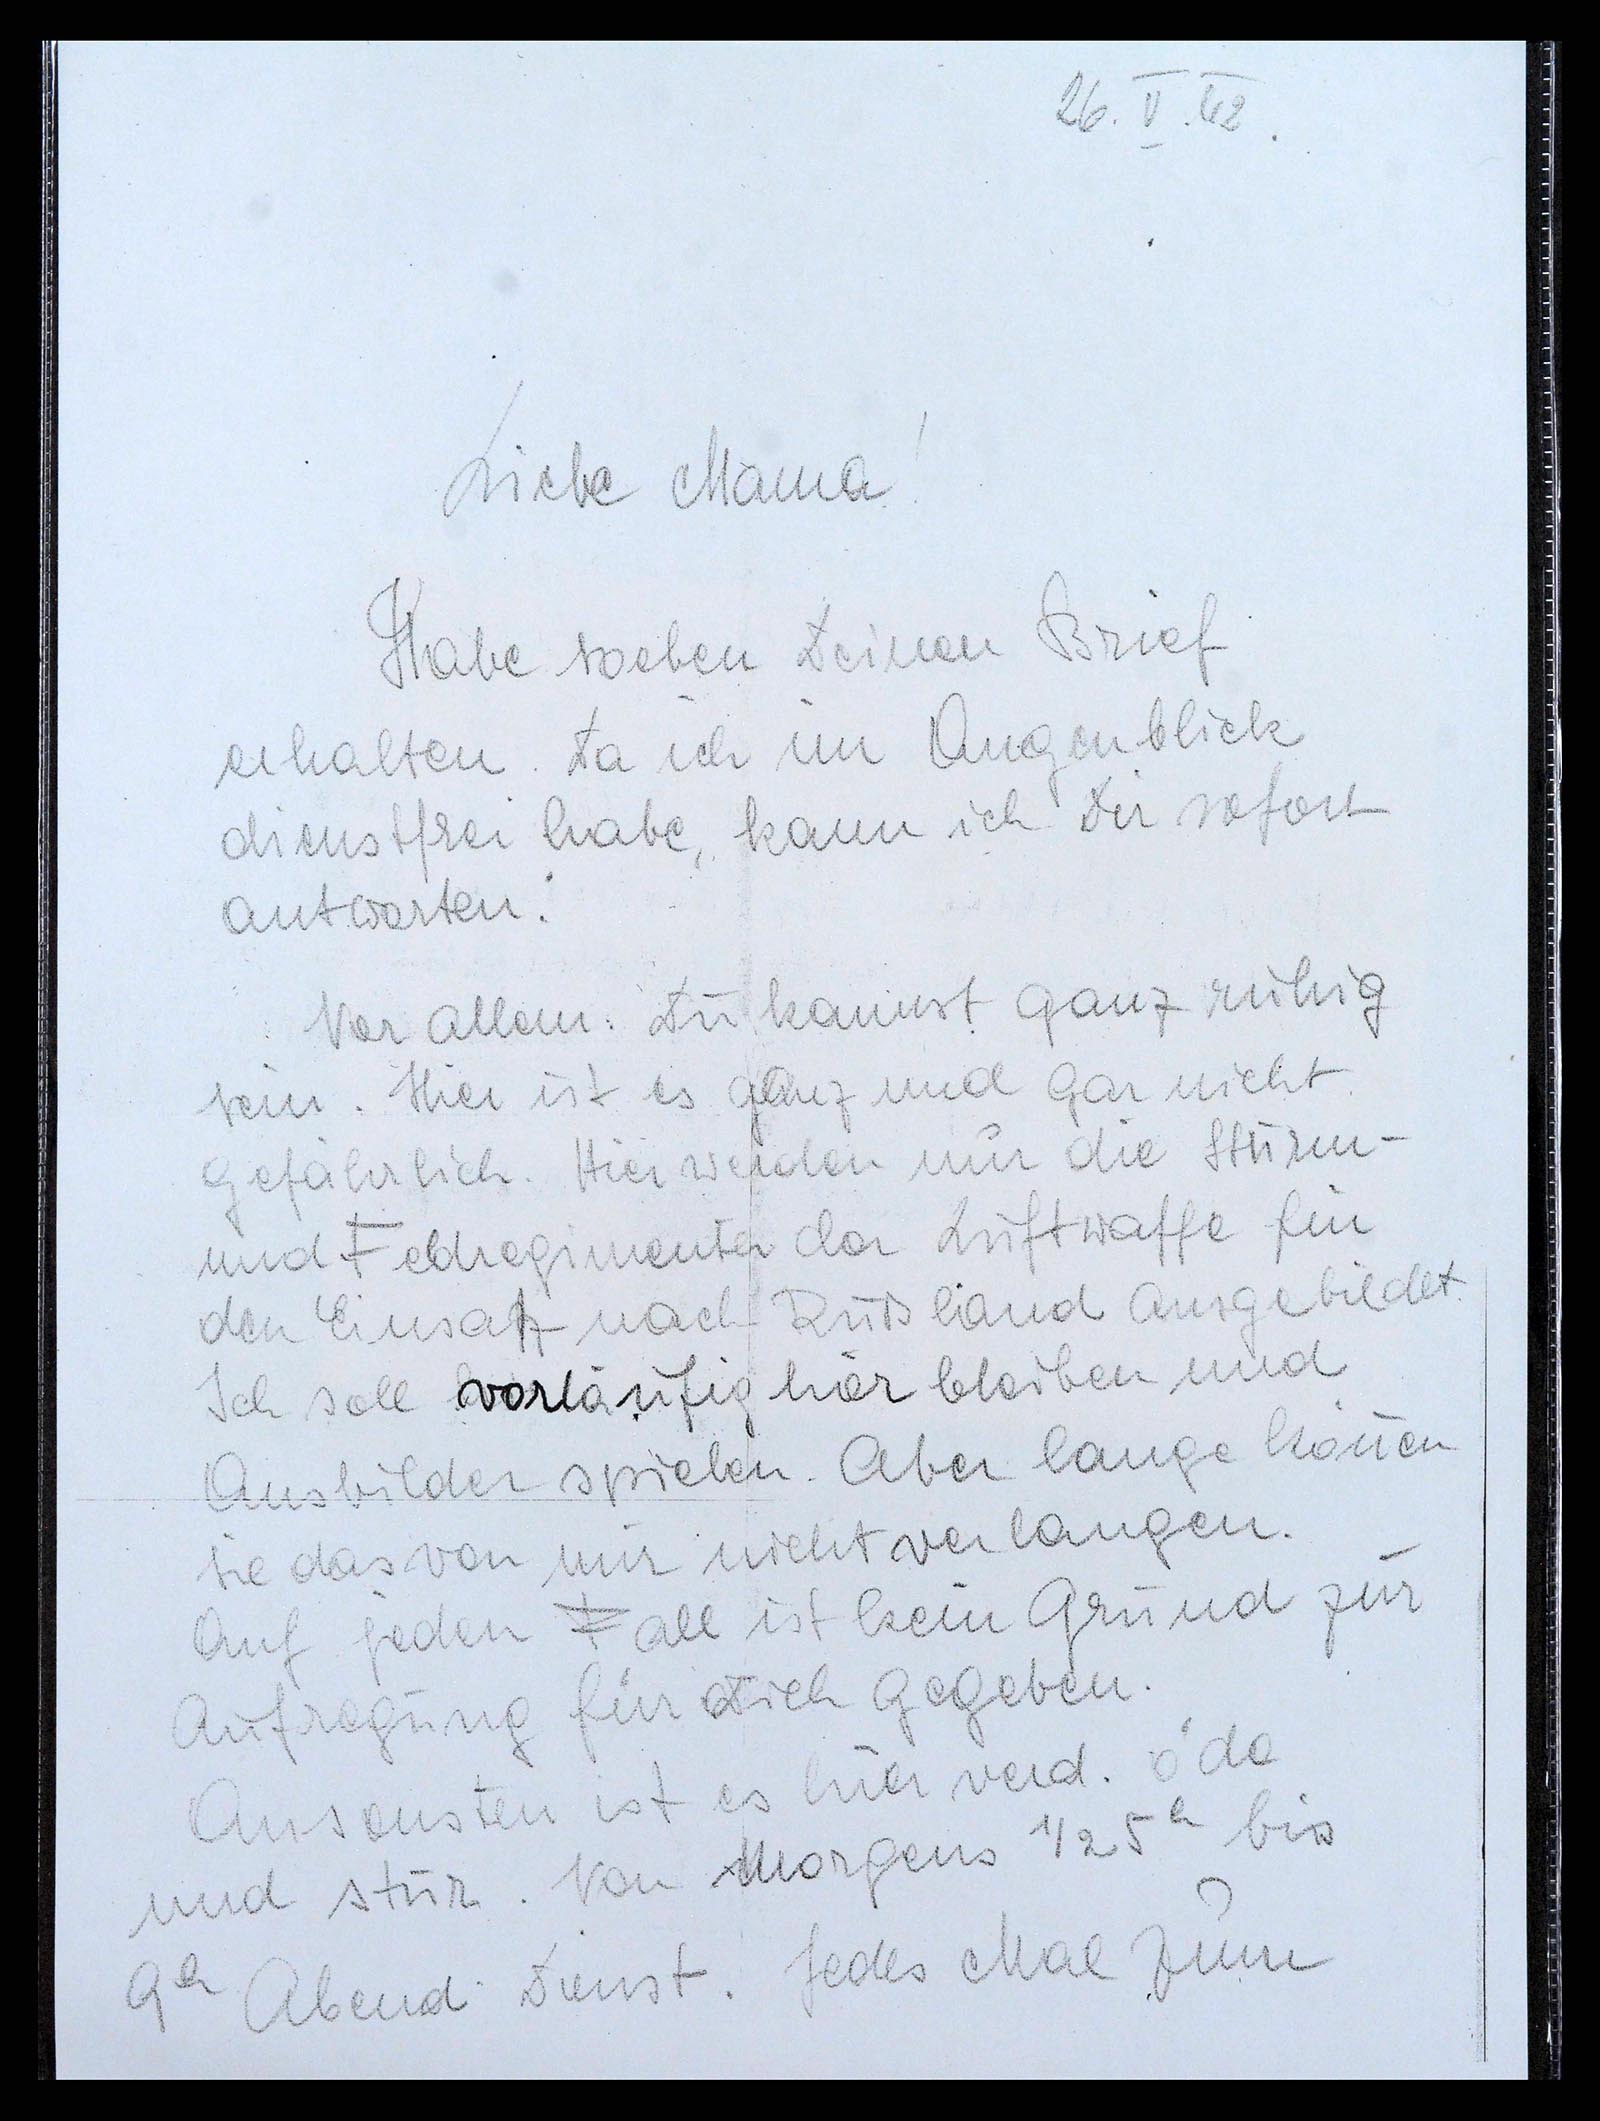 26. V. 42.
Liebe Mama!
Habe soeben Deinen Brief
erhalten. Da ich im Augenblick
dienstfrei habe, kann ich Dir sofort
antworten.
Vor allem: Du kannst ganz ruhig
sein. Hier ist es ganz und gar nicht
gefährlich. Hier werden nur die Sturm-
und Feldregimenter der Luftwaffe für
den Einsatz nach Rußland ausgebildet.
Ich soll vorläufig hier bleiben und
Ausbilder spielen. Aber lange können
sie das von mir nicht verlangen.
Auf jeden Fall ist kein Grund zur
Aufregung für Dich gegeben.
Ansonsten ist es hier verd. öde
und stur. Von Morgens 1/2 5h bis
9h Abend Dienst. Jedes Mal zum